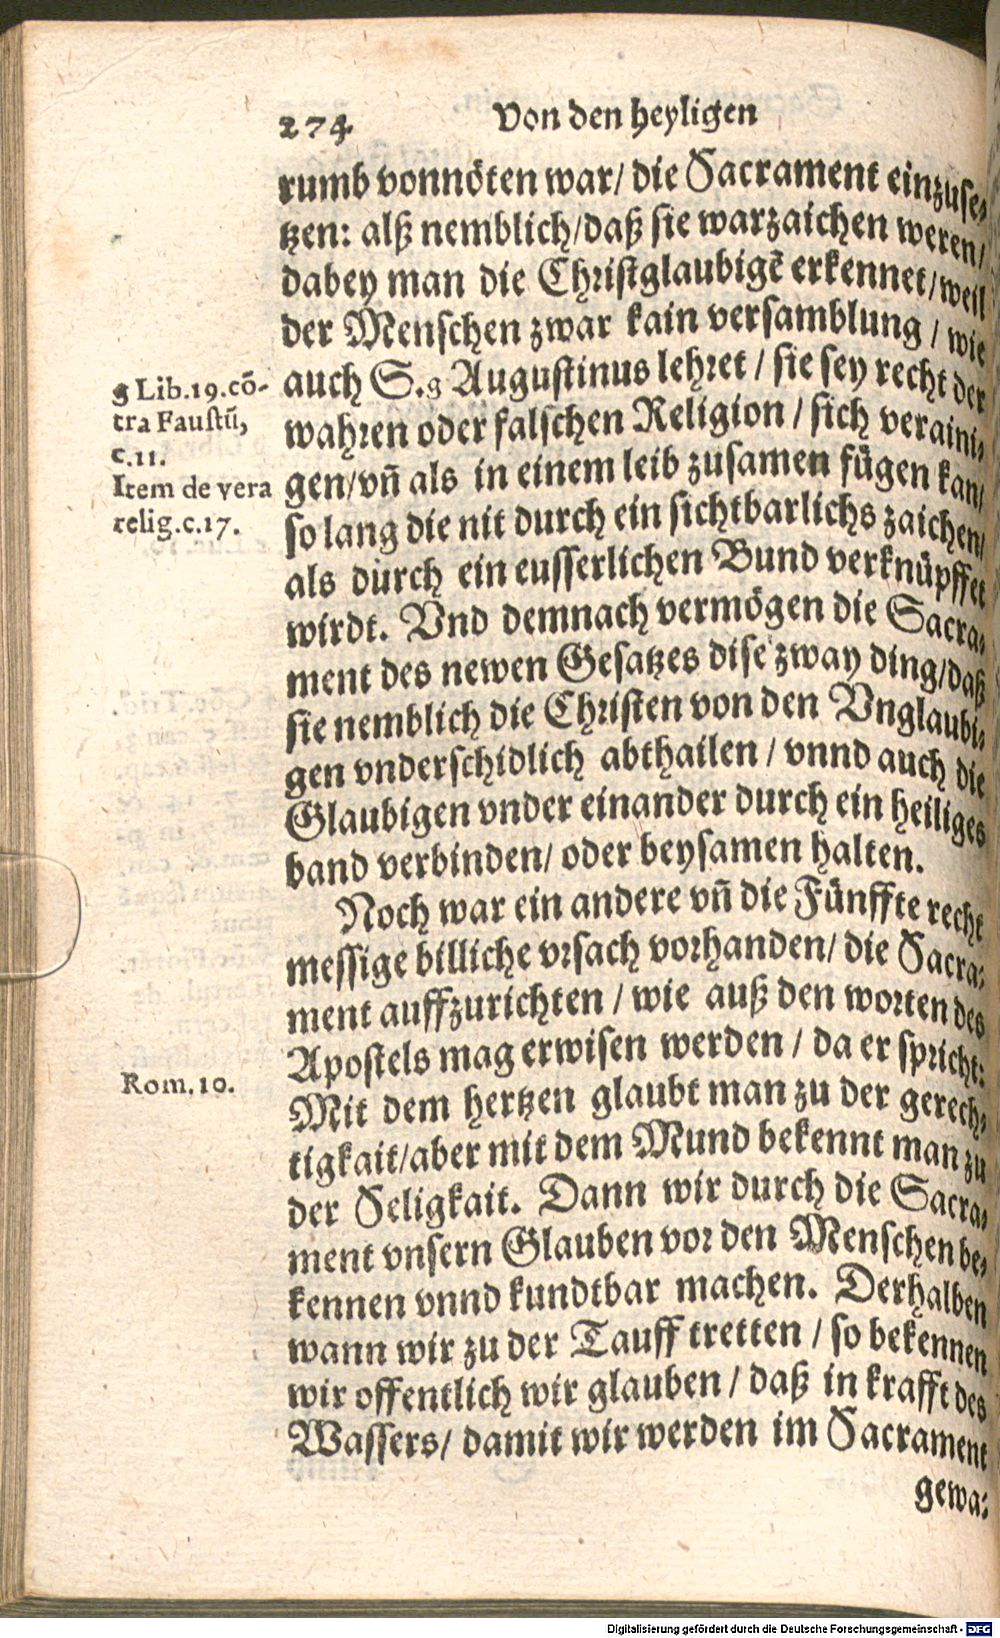 274 Von den heyligen
rumb vonnöten war/ die Sacrament einzuse-
tzen: alß nemblich/daß sie warzaichen weren/
dabey man die Christglaubigẽ erkennet/weil
der Menschen zwar kain versamblung / wie
auch S.g Augustinus lehret / sie sey recht der
wahren oder falschen Religion / sich veraini-
gen/vñ als in einem leib zusamen fügen kan/
so lang die nit durch ein sichtbarlichs zaichen/
als durch ein eusserlichen Bund verknüpffet
wirdt. Vnd demnach vermögen die Sacra-
ment des newen Gesatzes dise zway ding/daß
sie nemblich die Christen von den Vnglaubi-
gen vnderschidlich abthailen / vnnd auch die
Glaubigen vnder einander durch ein heiliges
band verbinden/ oder beysamen halten.
Noch war ein andere vñ die Fünffte recht
messige billiche vrsach vorhanden/ die Sacra-
ment auffzurichten / wie auß den worten des
Apostels mag erwisen werden / da er spricht:
Mit dem hertzen glaubt man zu der gerech-
tigkait/aber mit dem Mund bekennt man zu
der Seligkait. Dann wir durch die Sacra-
ment vnsern Glauben vor den Menschen be-
kennen vnnd kundtbar machen. Derhalben
wann wir zu der Tauff tretten / so bekennen
wir offentlich wir glauben / daß in krafft des
Wassers/ damit wir werden im Sacrament
gewa-
g Lib.19.cõ-
tra Faustũ,
c.11.
Item de vera
relig.c.17.
Rom.10.
Digitalisierung gefördert durch die Deutsche Forschungsgemeinschaft - DFG